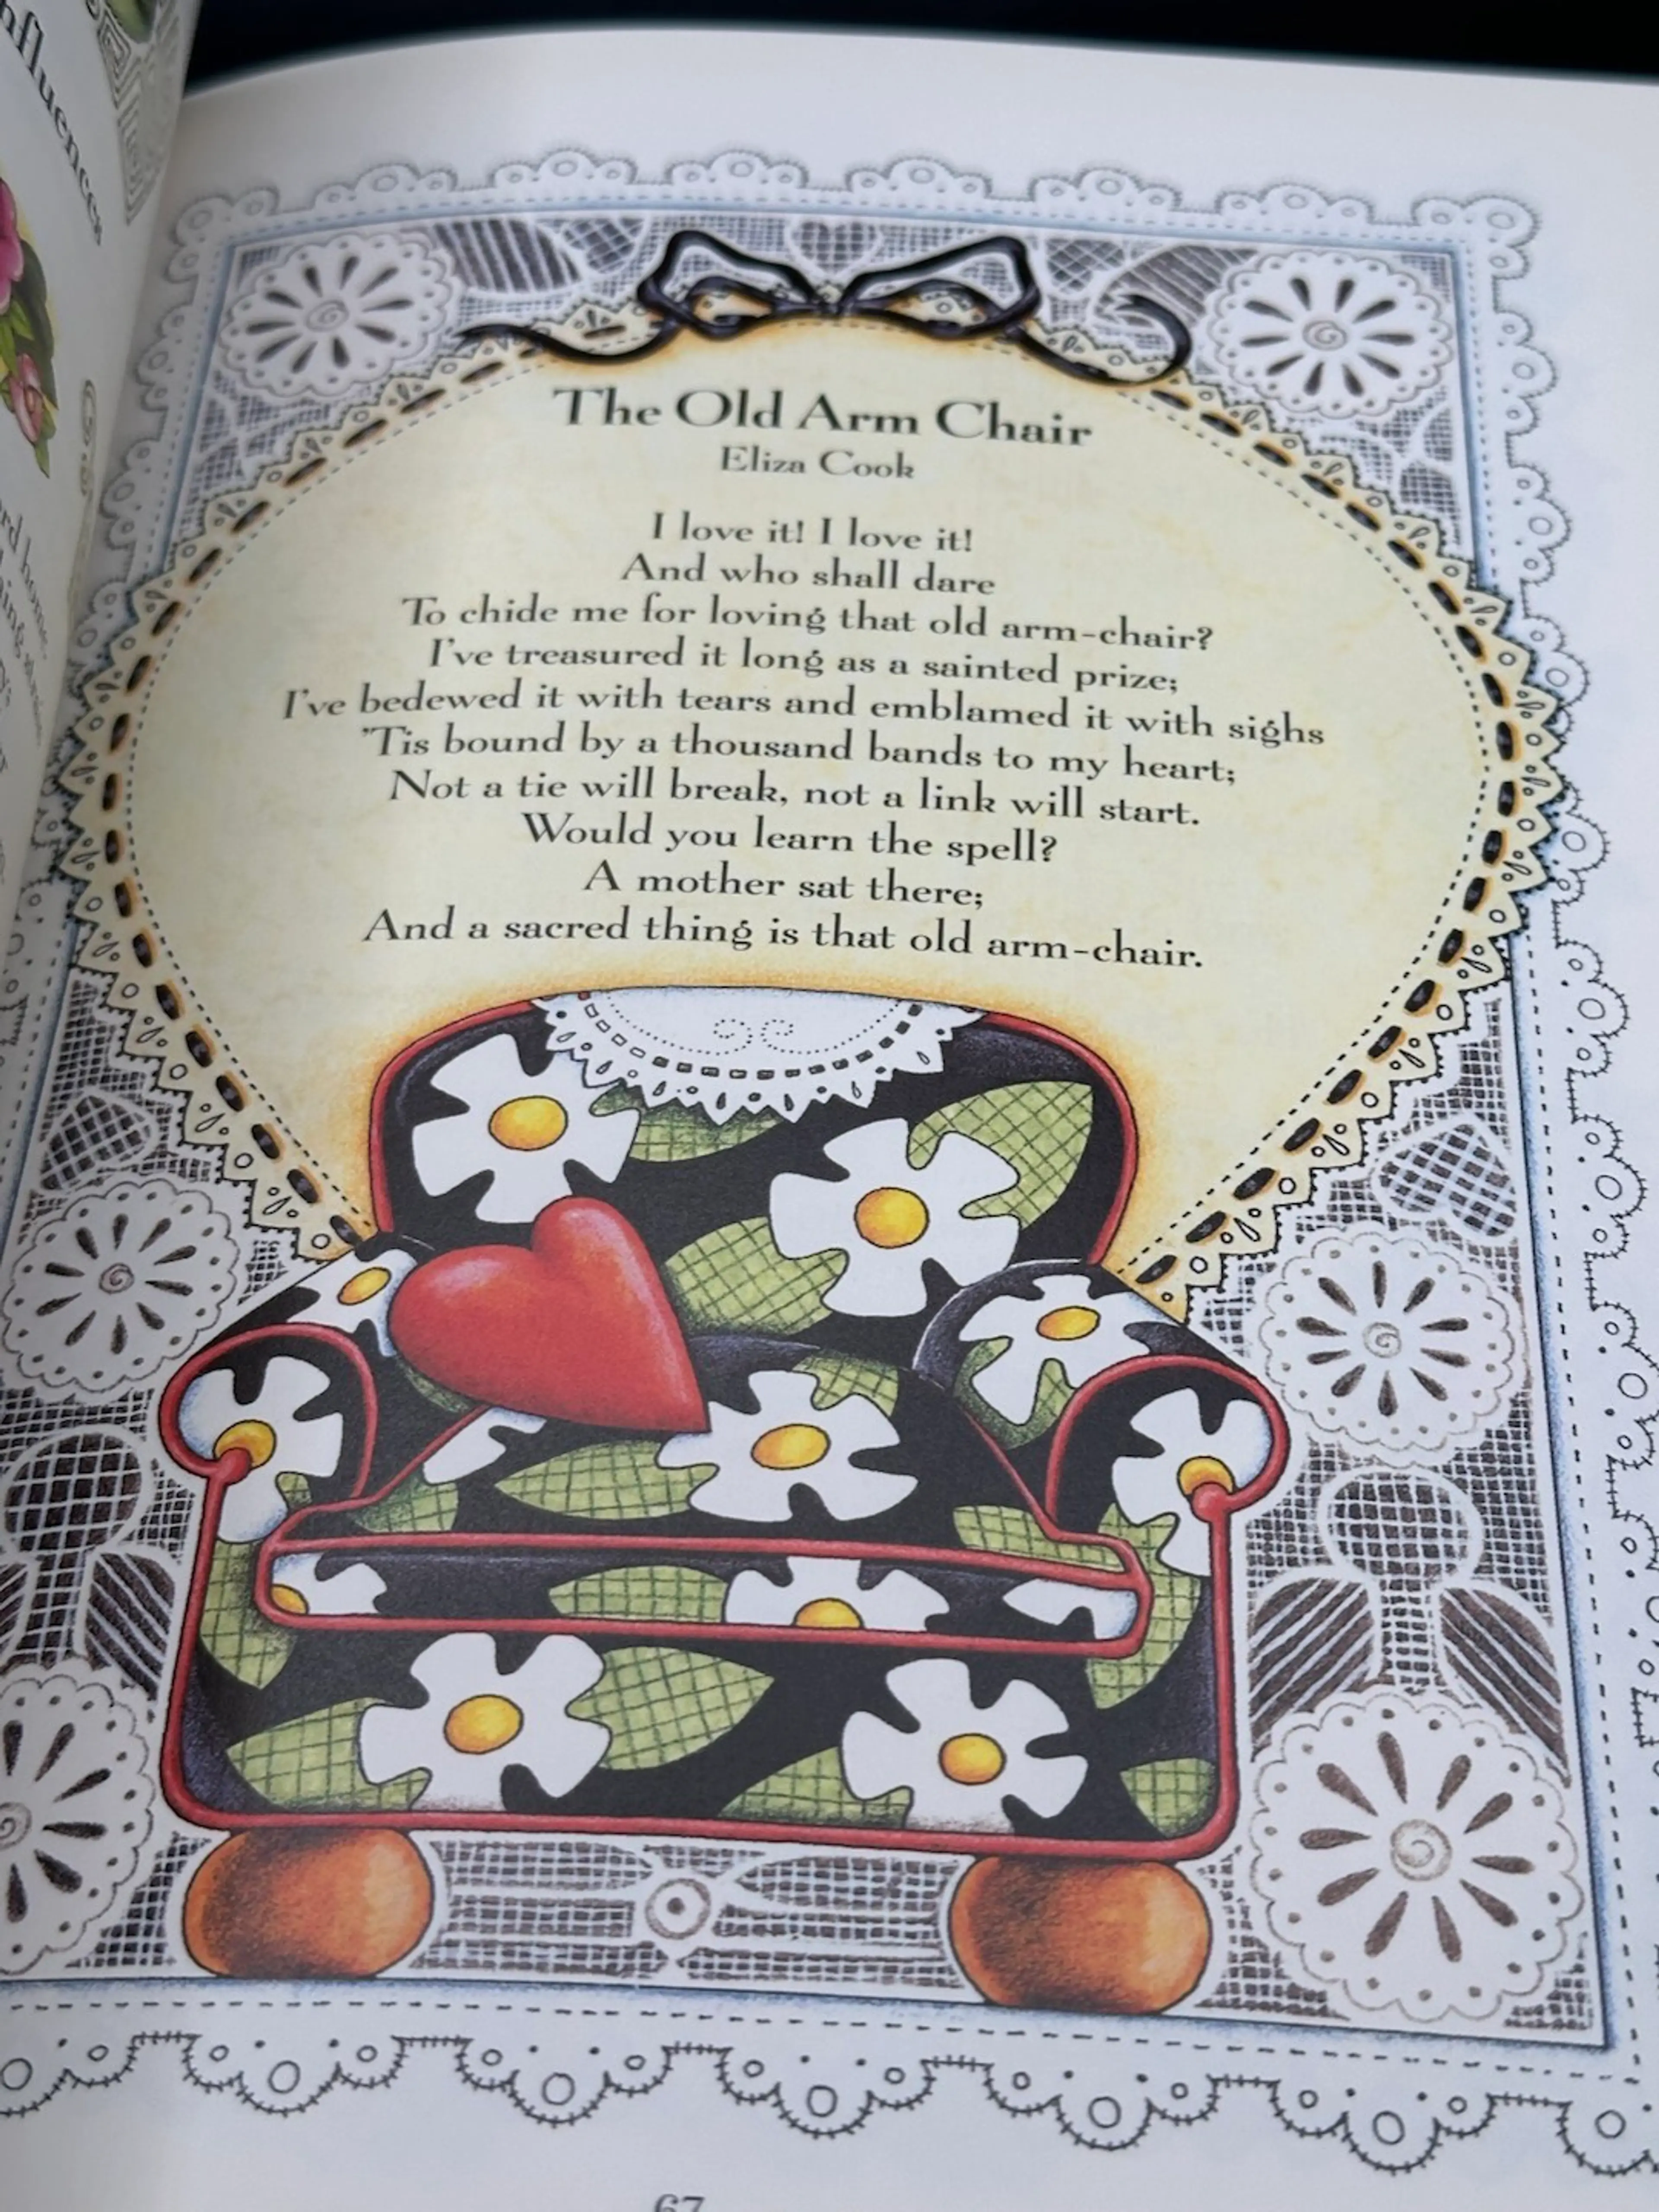 The Old Arm Chair
Eliza Cook
I love it! I love it!
And who shall dare
To chide me for loving that old arm-chair?
I've treasured it long as a sainted prize;
I've bedewed it with tears and emblamed it with sighs
'Tis bound by a thousand bands to my heart;
Not a tie will break, not a link will start.
Would you learn the spell?
A mother sat there;
And a sacred thing is that old arm-chair.
67